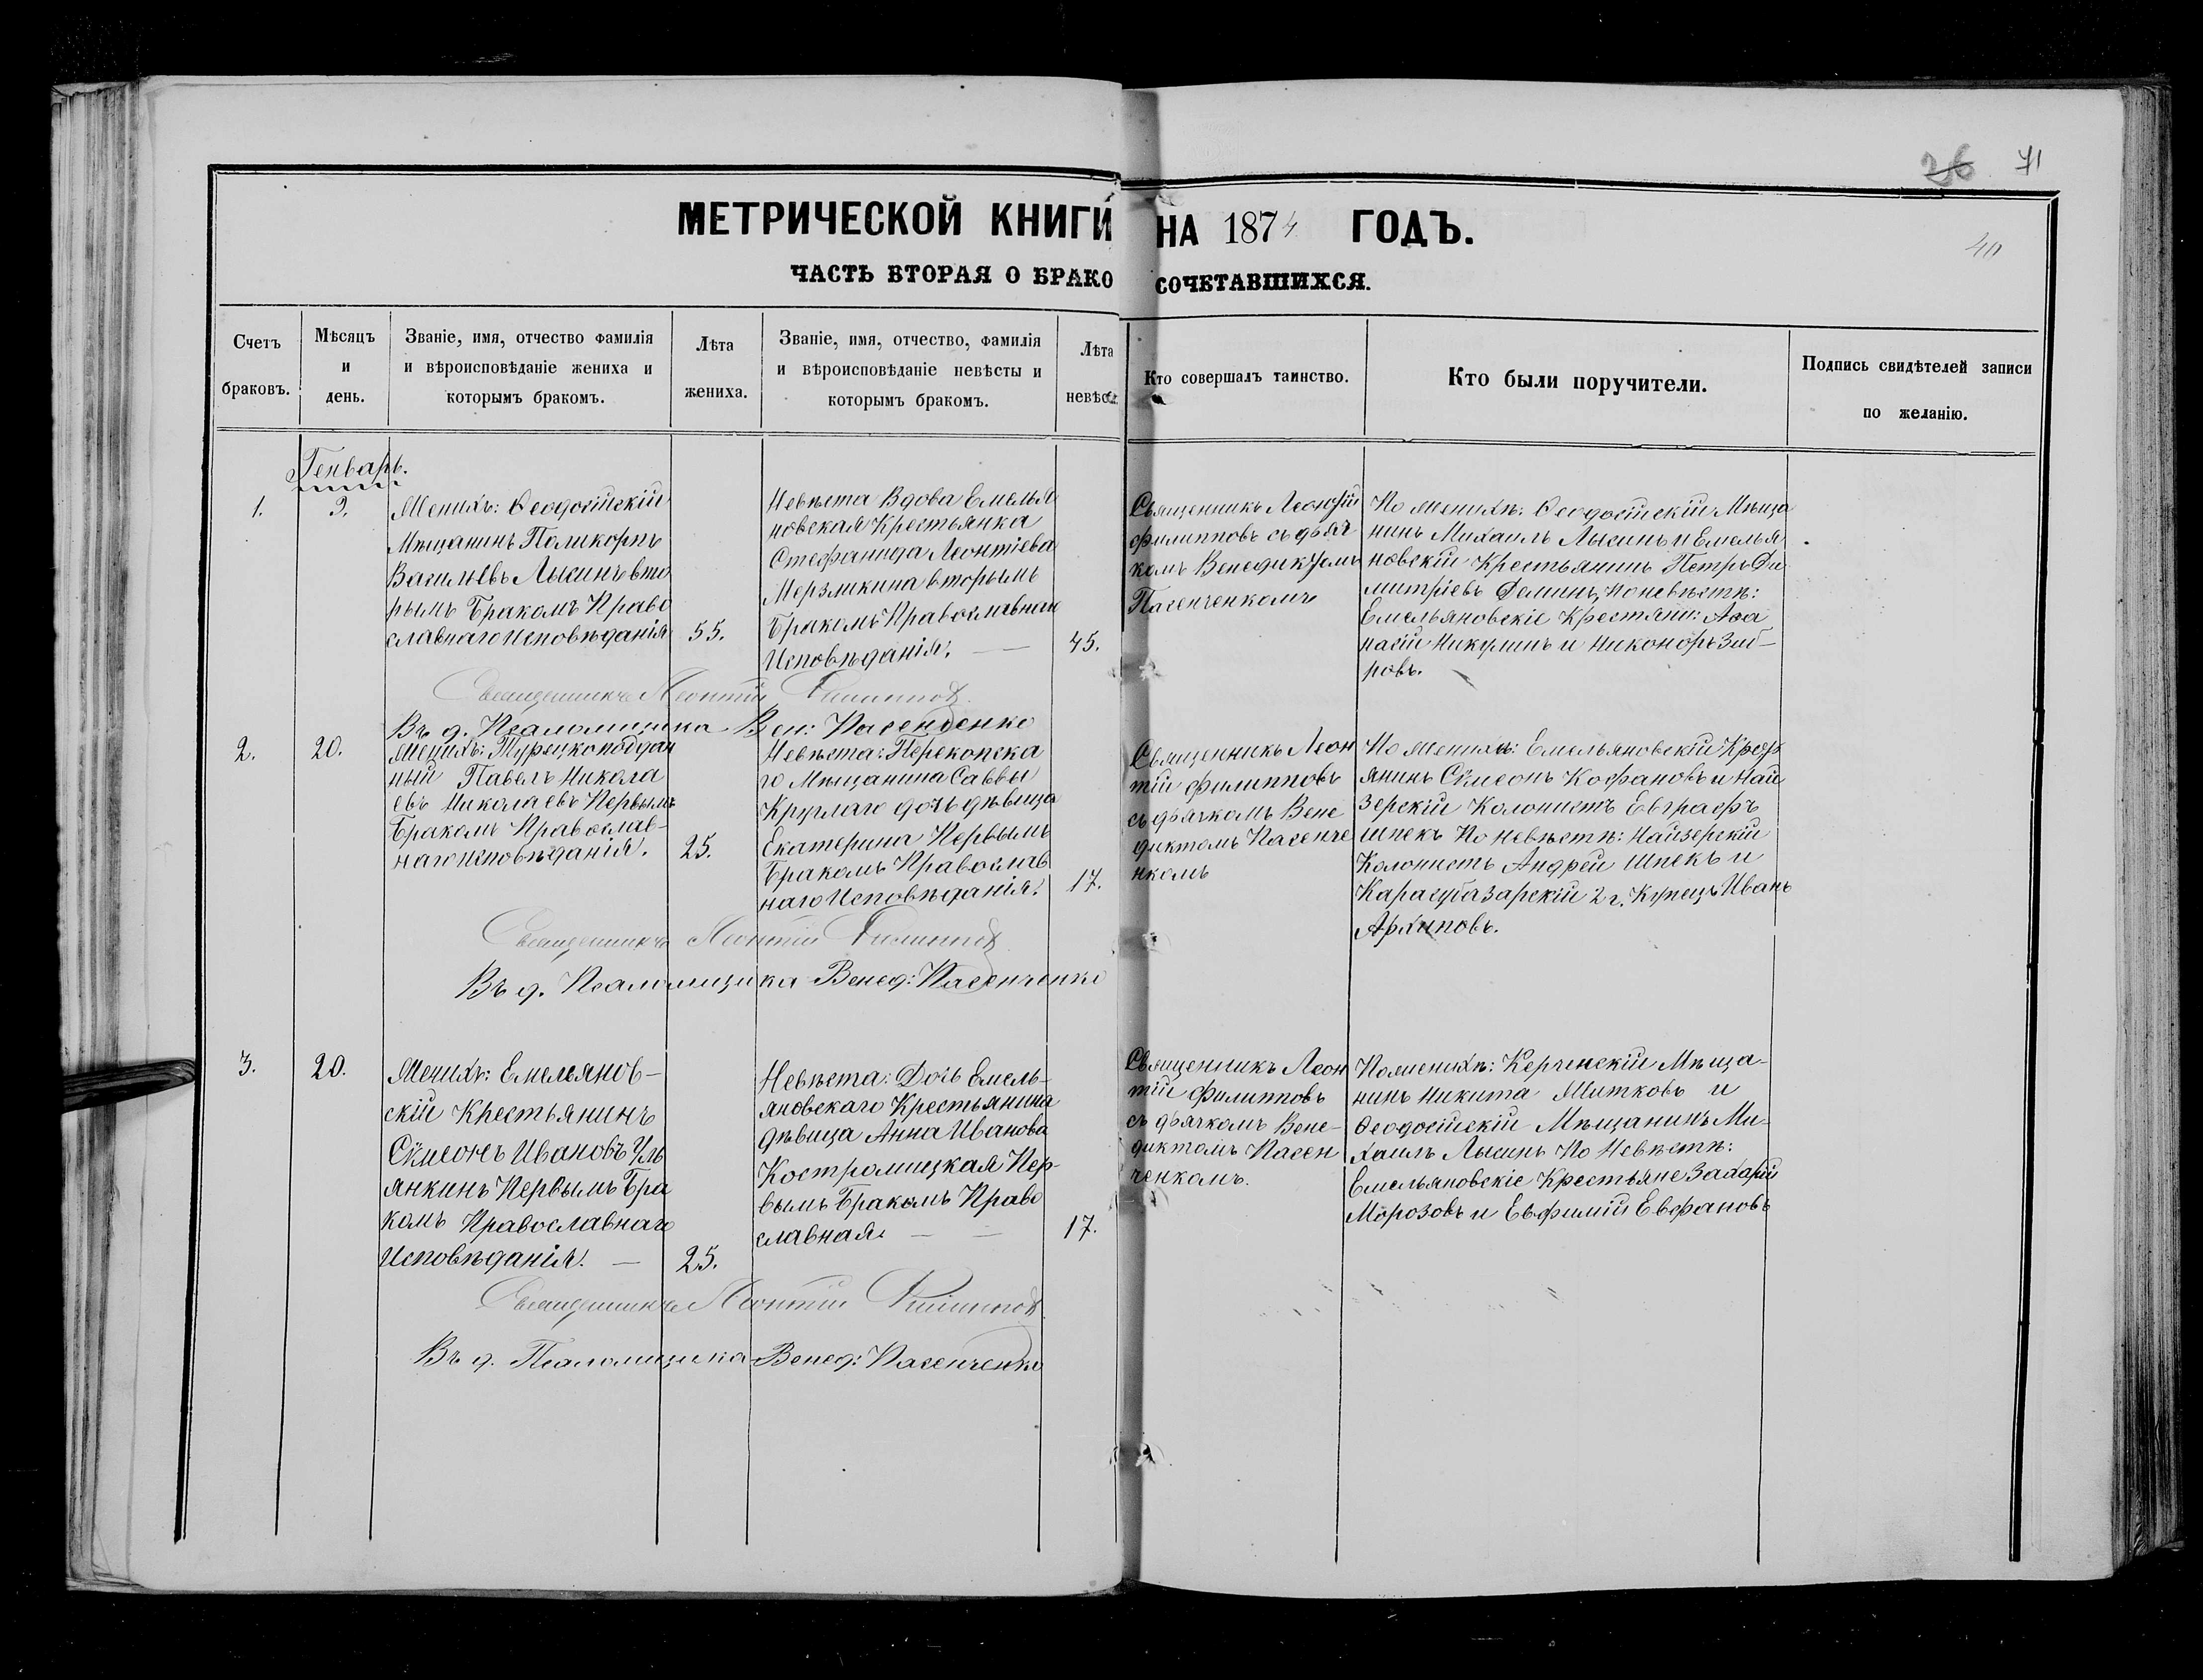 26 71
МЕТРИЧЕСКОЙ КНИГИ НА 1874 ГОДЪ.
40
ЧАСТЬ ВТОРАЯ О БРАКОСОЧЕТАВШИХСЯ.
Счетъ браковъ.
Мѣсяцъ и день.
Званіе, имя, отчество фамилія
и вѣроисповѣданіе жениха и
которымъ бракомъ.
Лѣта жениха.
Званіе, имя, отчество, фамилія
и вѣроисповѣданіе невѣсты и
которымъ бракомъ.
Лѣта невѣс
Кто совершалъ таинство.
Кто были поручители.
Подпись свидѣтелей записи
по желанію.
Генварь.
1.
9.
Женихъ: Ѳеодосійскій
Мѣщанинъ Поликорпъ
Васильевъ Лысинъ вто
рымъ Бракомъ Право
славнаго Исповѣданія
55.
Невѣста Вдова Емелья
новская Крестьянка
Стефанида Леонтіева
Мерзликина вторымъ
Бракомъ Православнаго
Исповѣданія. —
45.
Священникъ Леонтій
Филипповъ съ дьяч
комъ Венедиктомъ
Пасенченкомъ
По женихѣ: Ѳеодосійскій Мѣща
нинъ Михаилъ Лысинъ и Емелья
новскій Крестьянинъ Петръ Ди
митріевъ Деминъ, По невѣстѣ:
Емельяновскіе Крестьяни: Аѳа
насій Никулинъ и Никоноръ
ровъ.
Священникъ Леонтій Филипповъ
Въ д. Псаломщика Вен: Пасенченко
2.
20.
Женихъ: Турецкоподдан
ный Павелъ Никола
евъ Николаевъ Первымъ
Бракомъ Православ-
наго исповѣданія.
25.
Невѣста: Перекопска
го Мѣщанина Саввы
Круглаго дочь дѣвица
Екатерина Первымъ
Бракомъ Православ
наго Исповѣданія.
17.
Священникъ Леон
тій Филипповъ
съ дьячкомъ Вене
диктомъ Пасенче
нкомъ
По женихѣ: Емельяновскій Крест
янинъ Сѷмеонъ Кофановъ и Най
зерскій Колонистъ Евграфъ
Шпекъ По невѣстѣ: Найзерскій
Колонистъ Андрей Шпекъ и
Карасубазарскій 2 г. Купецъ Иванъ
Архиповъ.
Священникъ Леонтій Филипповъ
Въ д. Псаломщика Венед: Пасенченко
3.
20.
Женихъ: Емельянов-
скій Крестьянинъ
Сѷмеонъ Ивановъ Уль
янкинъ Первымъ Бра
комъ Православнаго
Исповѣданія. —
25.
Невѣста: Дочь Емель-
яновскаго Крестьянина
дѣвица Анна Иванова
Костромицкая Пер-
вымъ Бракомъ Право
славная. — —
17.
Священникъ Леон
тій Филипповъ
съ дьячкомъ Вене-
диктомъ Пасен
ченкомъ.
По женихѣ: Керченскій Мѣща-
нинъ Никита Митковъ и
Ѳеодосійскій Мѣщанинъ Ми-
хаилъ Лысинъ По Невѣстѣ:
Емельяновскіе Крестьяне Захарій
Морозовъ и Евфимій Евфановъ
Священникъ Леонтій Филипповъ
Въ д. Псаломщика Венед: Пасенченко